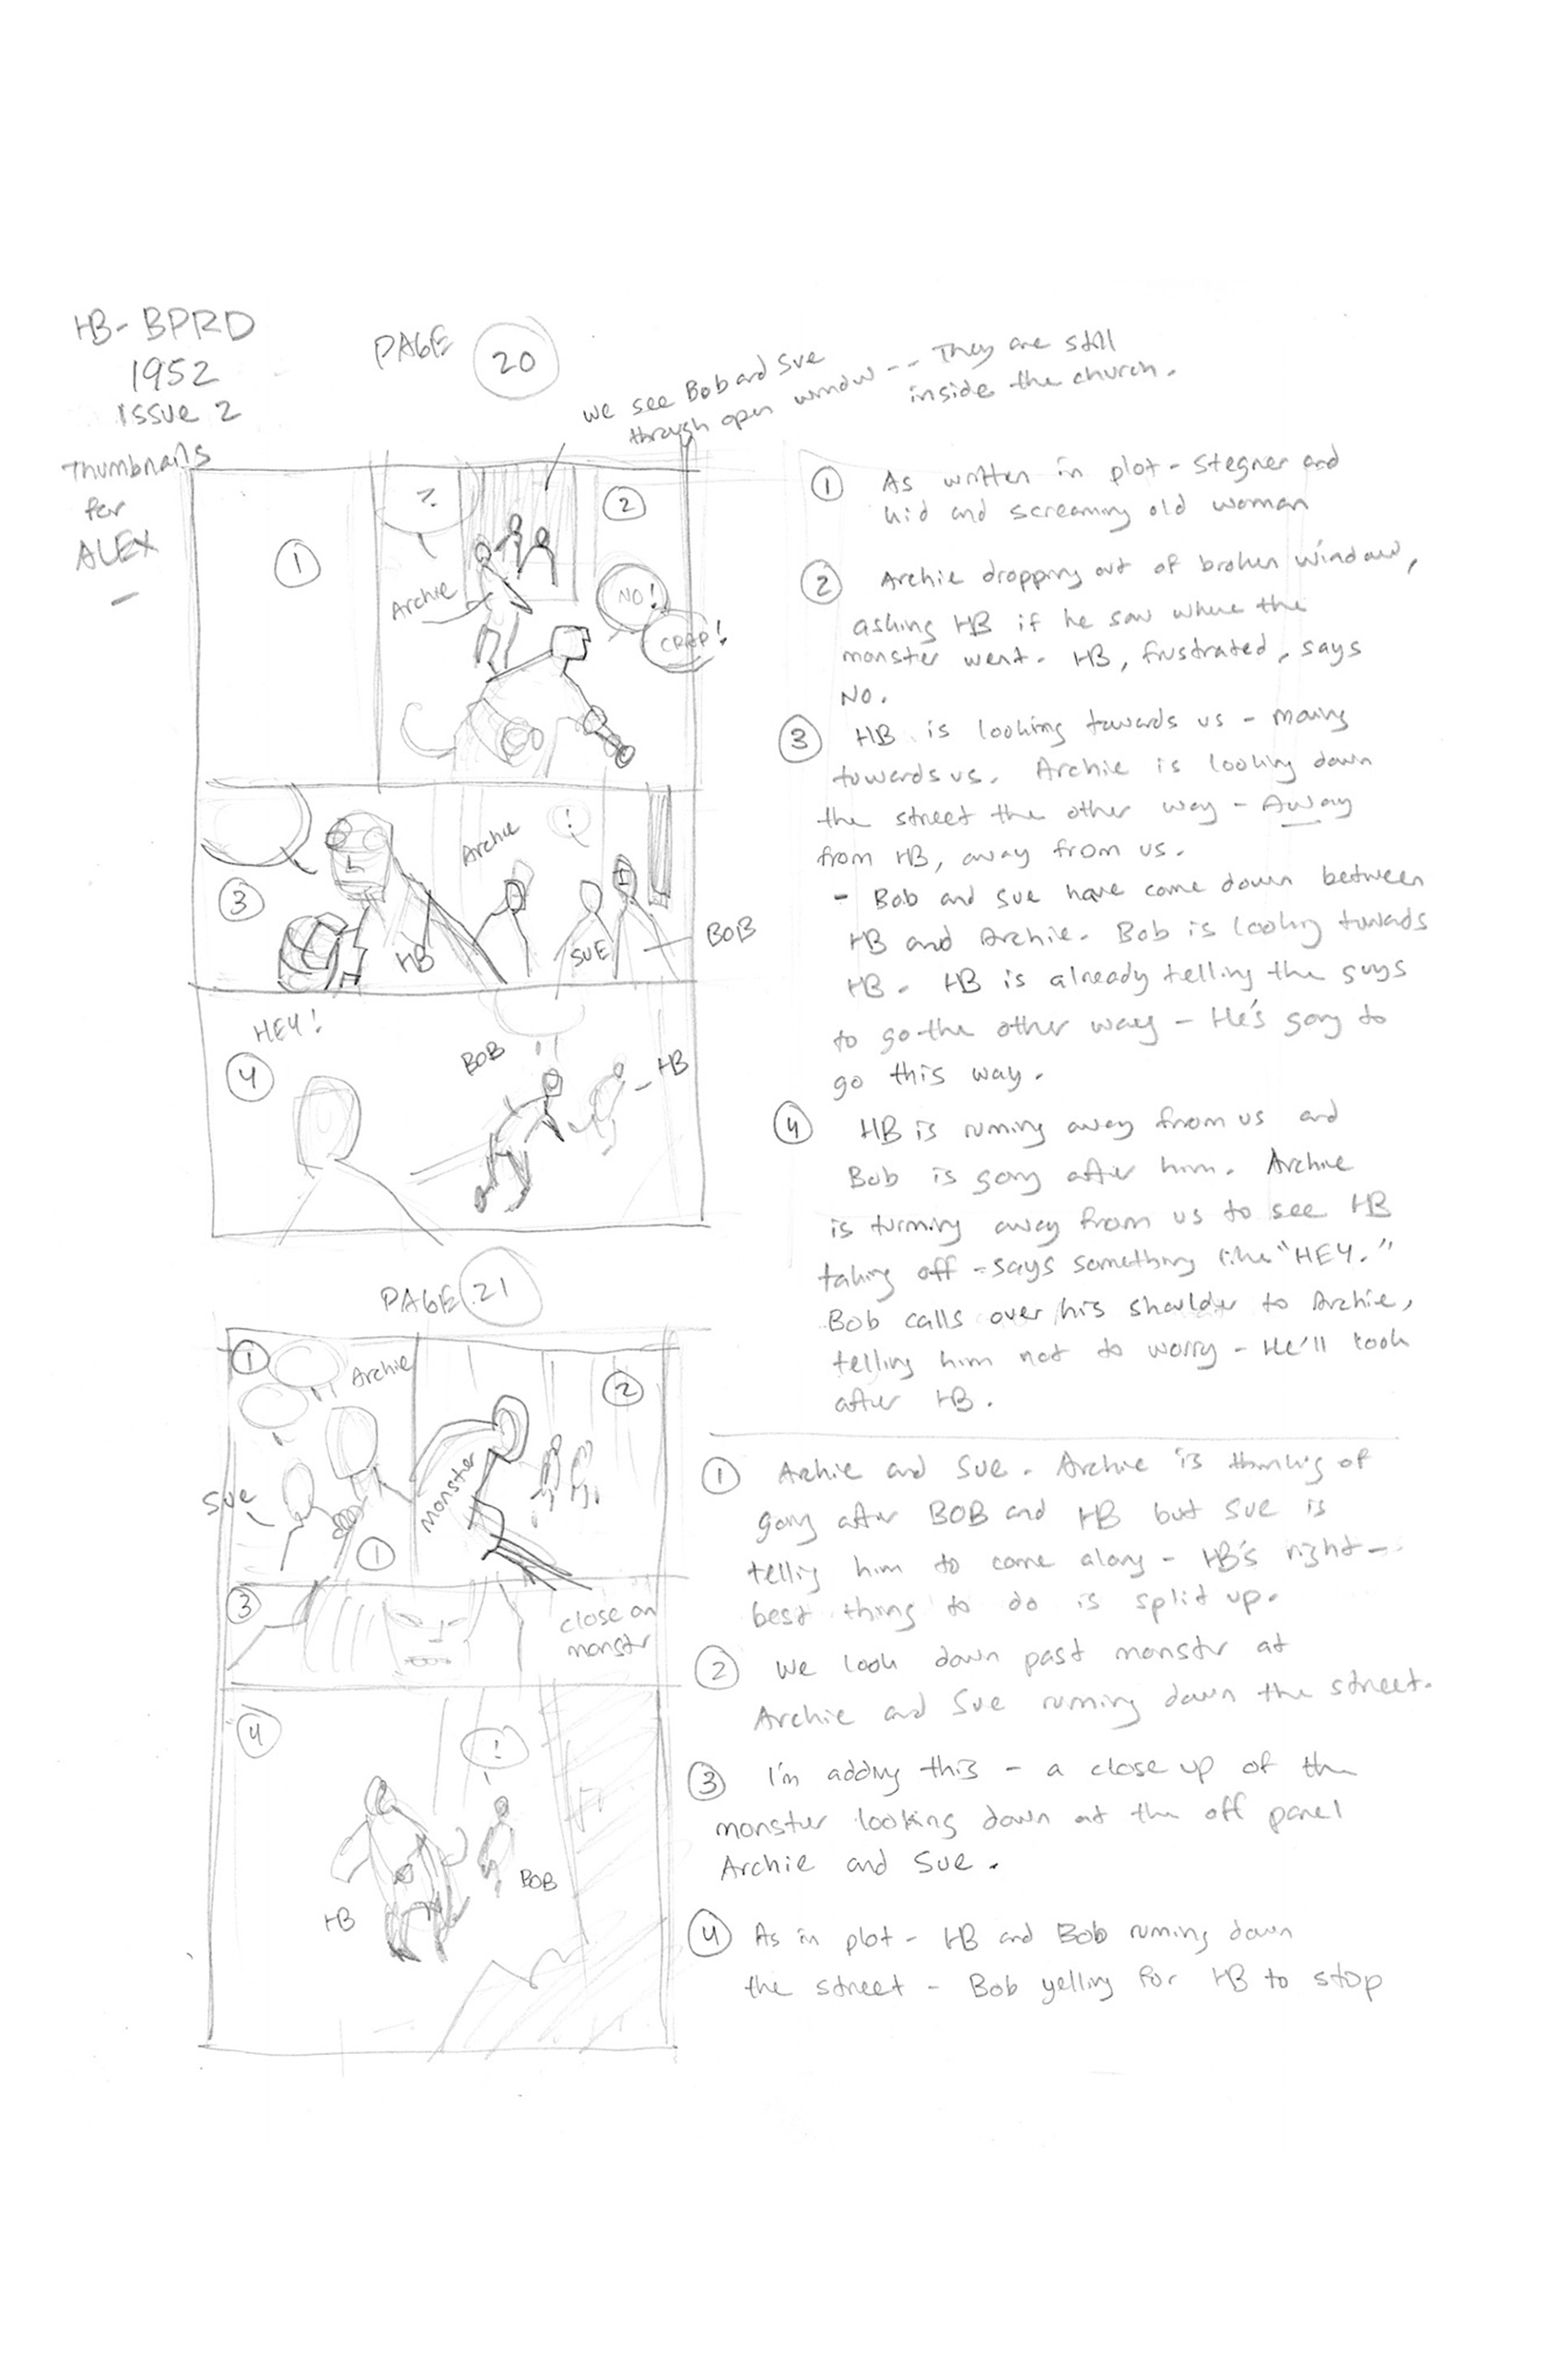 HB- BPRD
1952
ISSUE 2
Thumbnails
for
ALEX
PAGE 20
we see Bob and Sue
through open window -- They are still
inside the church.
1
?
Archie
2
NO!
CRAP!
3
HB
Archie
!
SUE
BOB
HEY!
4
BOB
HB
① As written in plot - Stegner and
kid and screaming old woman
② Archie dropping out of broken window,
asking HB if he saw where the
monster went. HB, frustrated, says
NO.
③ HB is looking towards us - moving
towards us. Archie is looking down
the street the other way - Away
from HB, away from us.
- Bob and Sue have come down between
HB and Archie. Bob is looking towards
HB. HB is already telling the guys
to go the other way - He's going to
go this way.
④ HB is running away from us and
Bob is going after him. Archie
is turning away from us to see HB
taking off - says something like "HEY."
Bob calls over his shoulder to Archie,
telling him not to worry - He'll look
after HB.
PAGE 21
1
Archie
Sue
1
2
monster
3
close on
monstr
4
!
HB
BOB
① Archie and Sue. Archie is thinking of
going after BOB and HB but Sue is
telling him to come along - HB's right --
best thing to do is split up.
② We look down past monster at
Archie and Sue running down the street.
③ I'm adding this - a close up of the
monster looking down at the off panel
Archie and Sue.
④ As in plot - HB and Bob running down
the street - Bob yelling for HB to stop